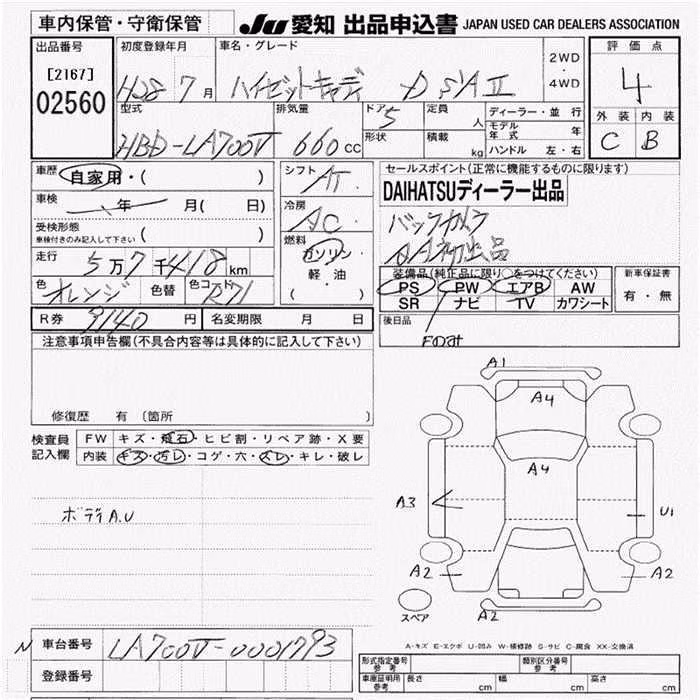 車内保管・守衛保管
JU 愛知 出品申込書 JAPAN USED CAR DEALERS ASSOCIATION
出品番号 初度登録年月 車名・グレード 2WD・4WD 評価点
[2167]
02560 H28 7 月 ハイゼットキャディー D SAⅡ 4
型式 排気量 ドア 5 定員 人 ディーラー・並行 外装 内装
モデル年式 年
HBD-LA700V 660 CC 形状 積載 kg ハンドル 左・右 C B
車歴 自家用・( ) シフト AT セールスポイント(正常に機能するものに限ります)
車検 年 月( 日) DAIHATSUディーラー出品
受検形態 ( ) 冷房 AC バックカメラ
車検付きのみ記入して下さい AA初出品
走行 5万7千418km 燃料 ガソリン・軽油 ( ) 装備品(純正品に限り○をつけてください) 新車保証書
PS PW エアB AW 有・無
色 オレンジ 色替 色コード R71 SR ナビ TV カワシート
R券 9140 円 名変期限 月 日 後日品
注意事項申告欄(不具合内容等は具体的に記入して下さい) Fのみ
A1
A4
修復歴 有 〔箇所 〕
検査員 FW キズ・飛石・ヒビ割・リペア跡・X要
記入欄 内装 キズ・汚レ・コゲ・穴・スレ・キレ・破レ
A4
A3 U1
ボディA.U
A2 A2
スペア A2
A-キズ E-エクボ U-凹み W-補修跡 S-サビ C-腐食 XX-交換済
N 車台番号 LA700V-0001793
形式指定番号 参考 類別区分番号 参考
登録番号 車庫証明用 参考 長さ cm 幅 cm 高さ cm